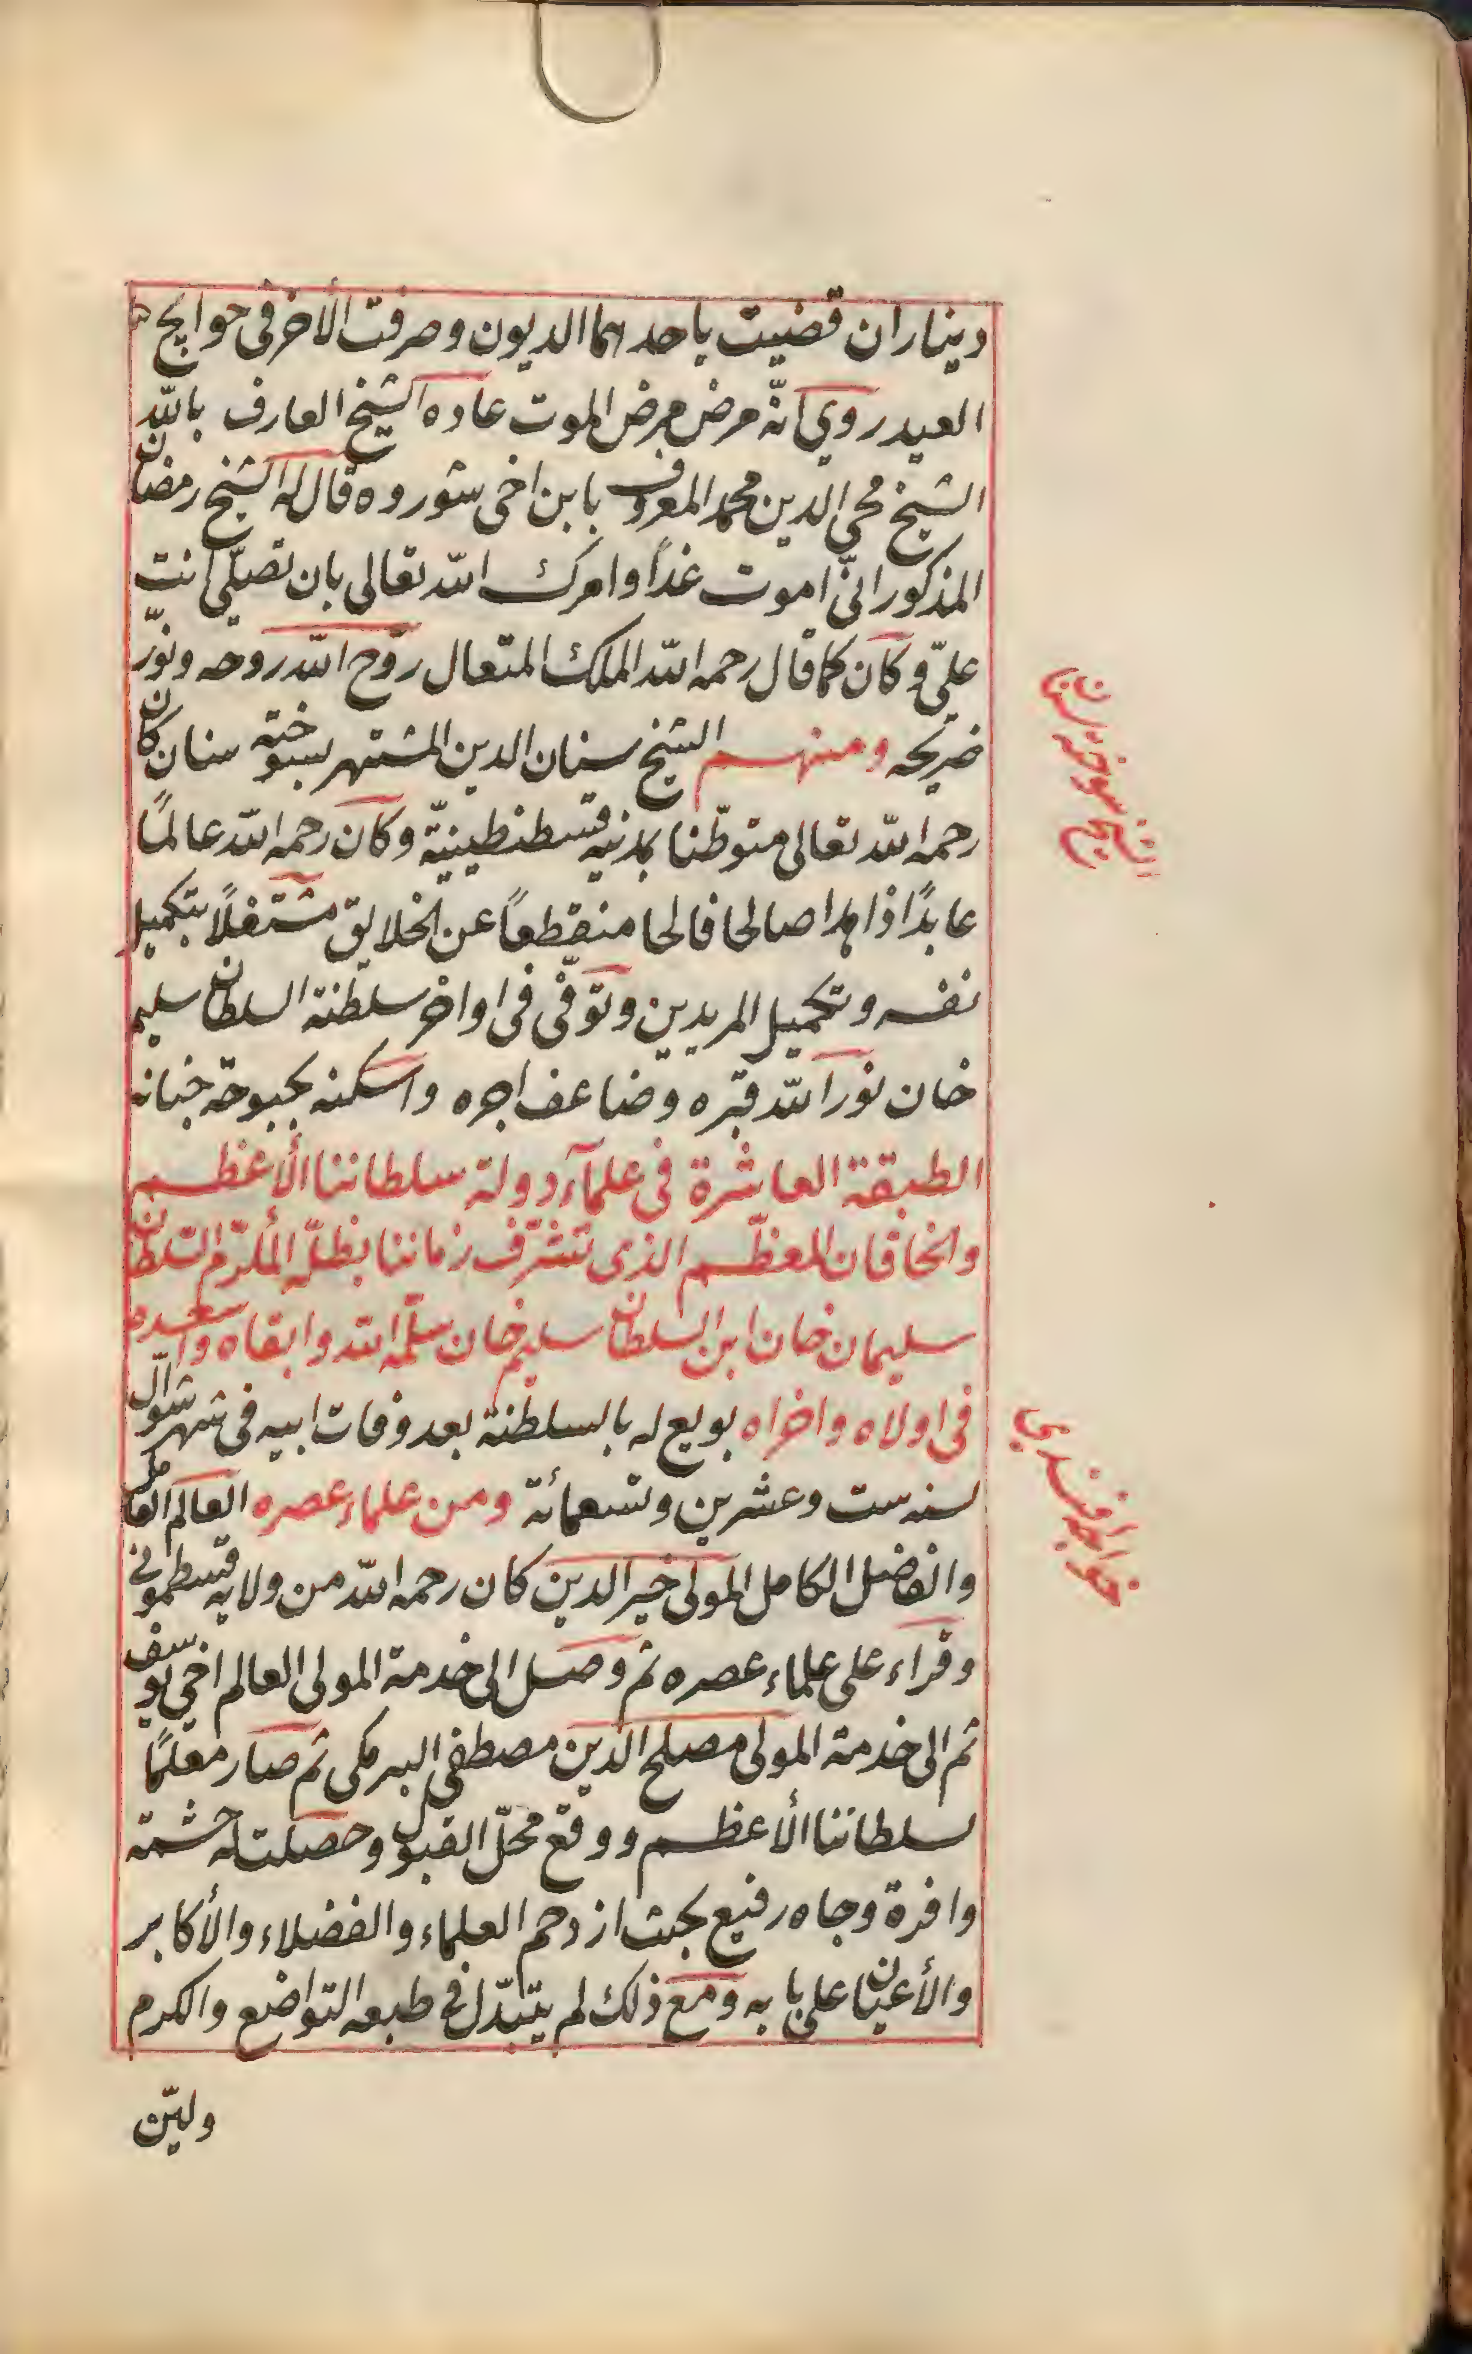 ديناران قضيت باحداهما الديون وصرفت الأخر فى حوايج
العيد روي انّه مرض مرض الموت عاده الشيخ العارف بالله
الشيخ محي الدين محمد المعروف بابن اخى شوروه قال له الشيخ رمضان
المذكور انّى اموت غداً وامرك الله تعالى بان تصلّي انت
علىّ وكان كما قال رحمه الله الملك المتعال روّح الله روحه ونوّر
ضريحه ومنهم الشيخ سنان الدين المشتهر بسوخته سنان كان
رحمه الله تعالى متوطّنا بمدينة قسطنطينيّة وكان رحمه الله عالماً
عابداً زاهدا صالحا فالحا منقطعاً عن الخلايق مشتغلاً بتكميل
نفسه وتكميل المريدين وتوفّى فى اواخر سلطنة السلطان سليم
خان نور الله قبره وضاعف اجره واسكنه بحبوحة جنانه
الطبقة العاشرة فى علمآء دولة سلطاننا الأعظم
والخاقان المعظّم الذى تشرّف زماننا بظلّه المكرّم السّلطان
سليمان خان ابن السلطان سليم خان سلّمه الله وابقاه واسعده
فى اولاه واخراه بويع له بالسلطنة بعد وفات ابيه فى شهر شوّال
لسنه ست وعشرين وتسعمائة ومن علماء عصره العالم العامل
والفاضل الكامل المولى خير الدين كان رحمه الله من ولاية قسطمونى
وقراء على علماء عصره ثم وصل الى خدمة المولى العالم اخى يوسف
ثم الى خدمة المولى مصلح الدين مصطفى البرمكى ثم صار معلماً
لسلطاننا الأعظم ووقع محلّ القبول وحصلت له حشمة
وافرة وجاه رفيع بحيث ازدحم العلماء والفضلاء والأكابر
والأعيان على بابه ومع ذلك لم يتبدّل فى طبعه التواضع والكرم
وليّن
الشيخ سوخته سنان
خواجه افندى